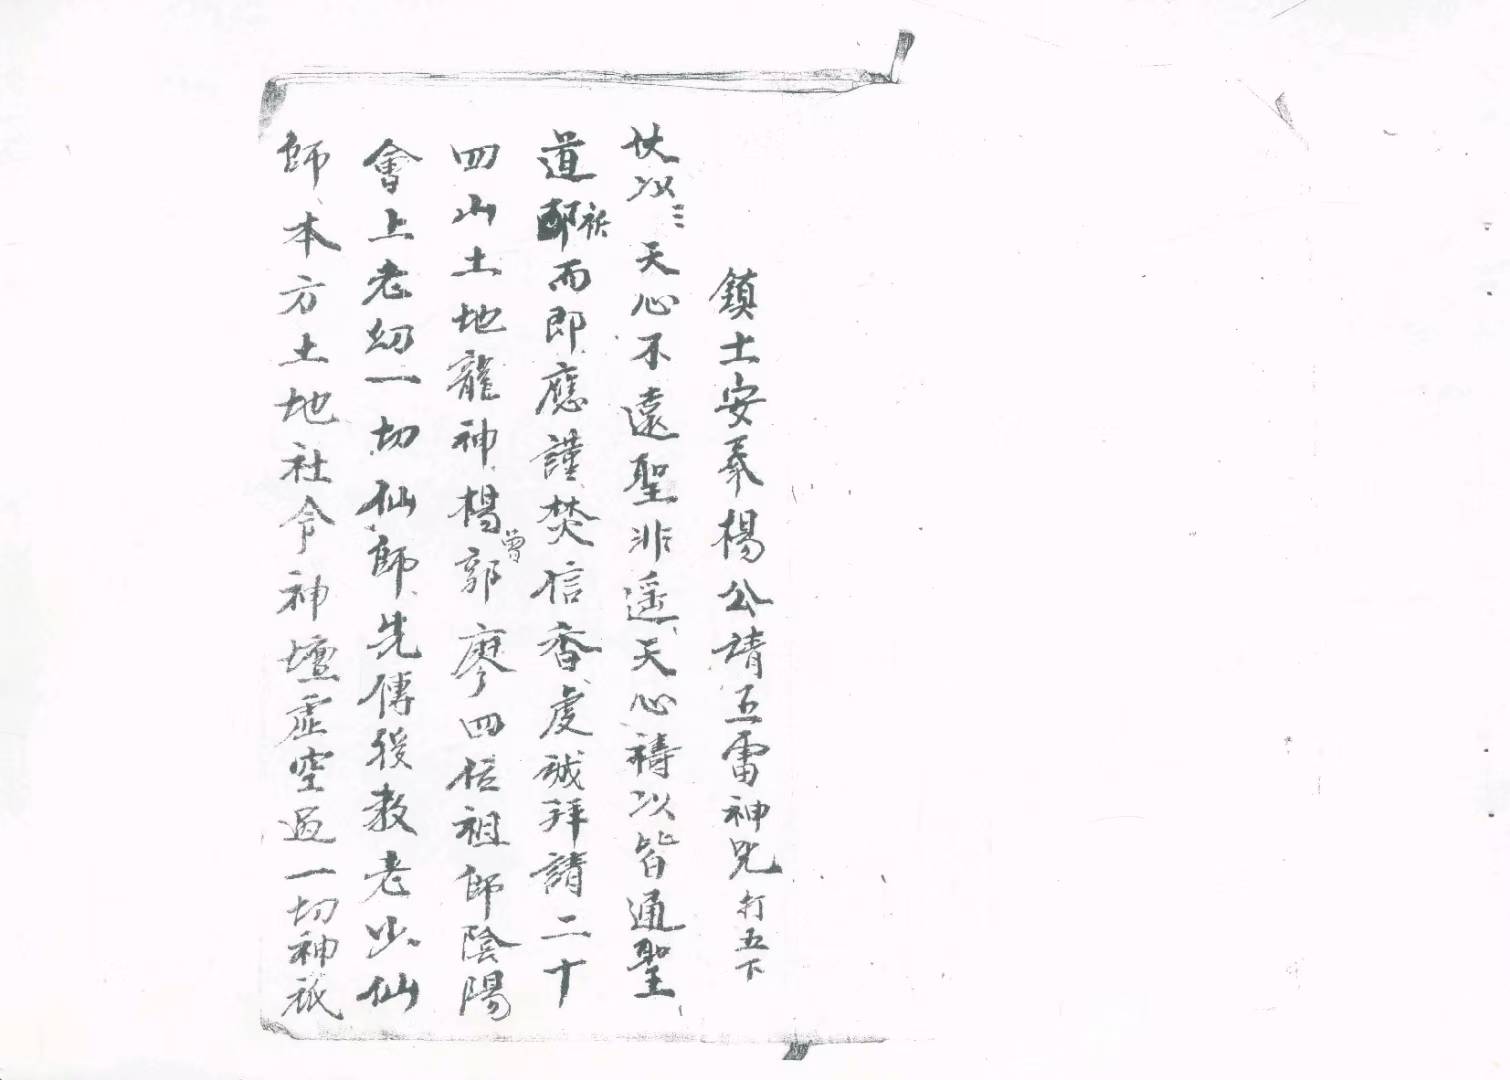 鎮土安奉楊公請五雷神咒打五下
伏以 天心不遠聖非遥天心禱以皆通聖
道祈而即應謹焚信香虔誠拜請二十
四山土地龍神楊曾郭廖四位祖師陰陽
會上老幼一切仙師先傳後教老少仙
師本方土地社令神壇虛空過一切神祇